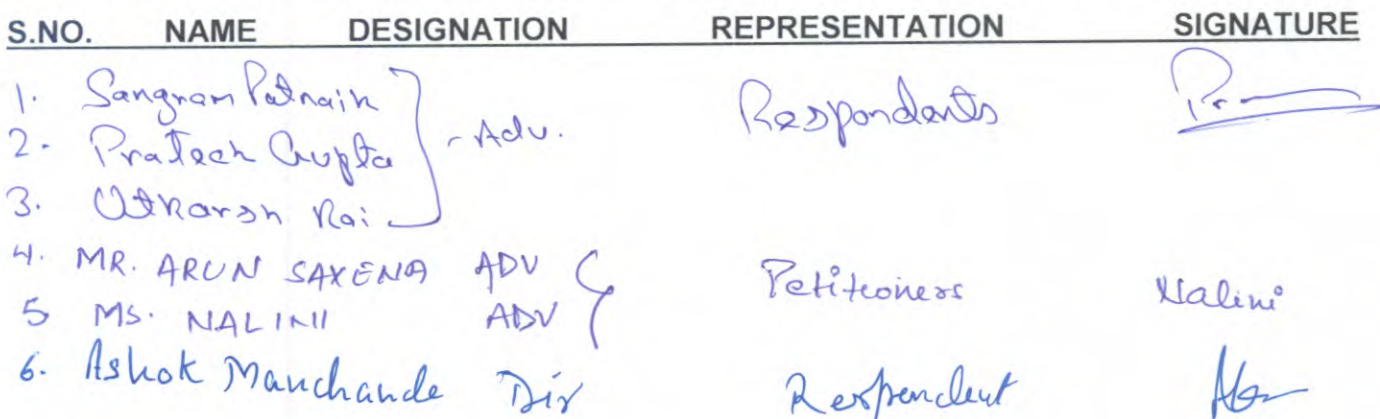 S.NO. NAME DESIGNATION REPRESENTATION SIGNATURE
1. Sangram Patnaik - Adv. Respondents
2. Prateek Gupta
3. Utkarsh Rai
4. MR. ARUN SAXENA ADV Petitioners Nalini
5 MS. NALINI ADV
6. Ashok Manchande Dir Respondent